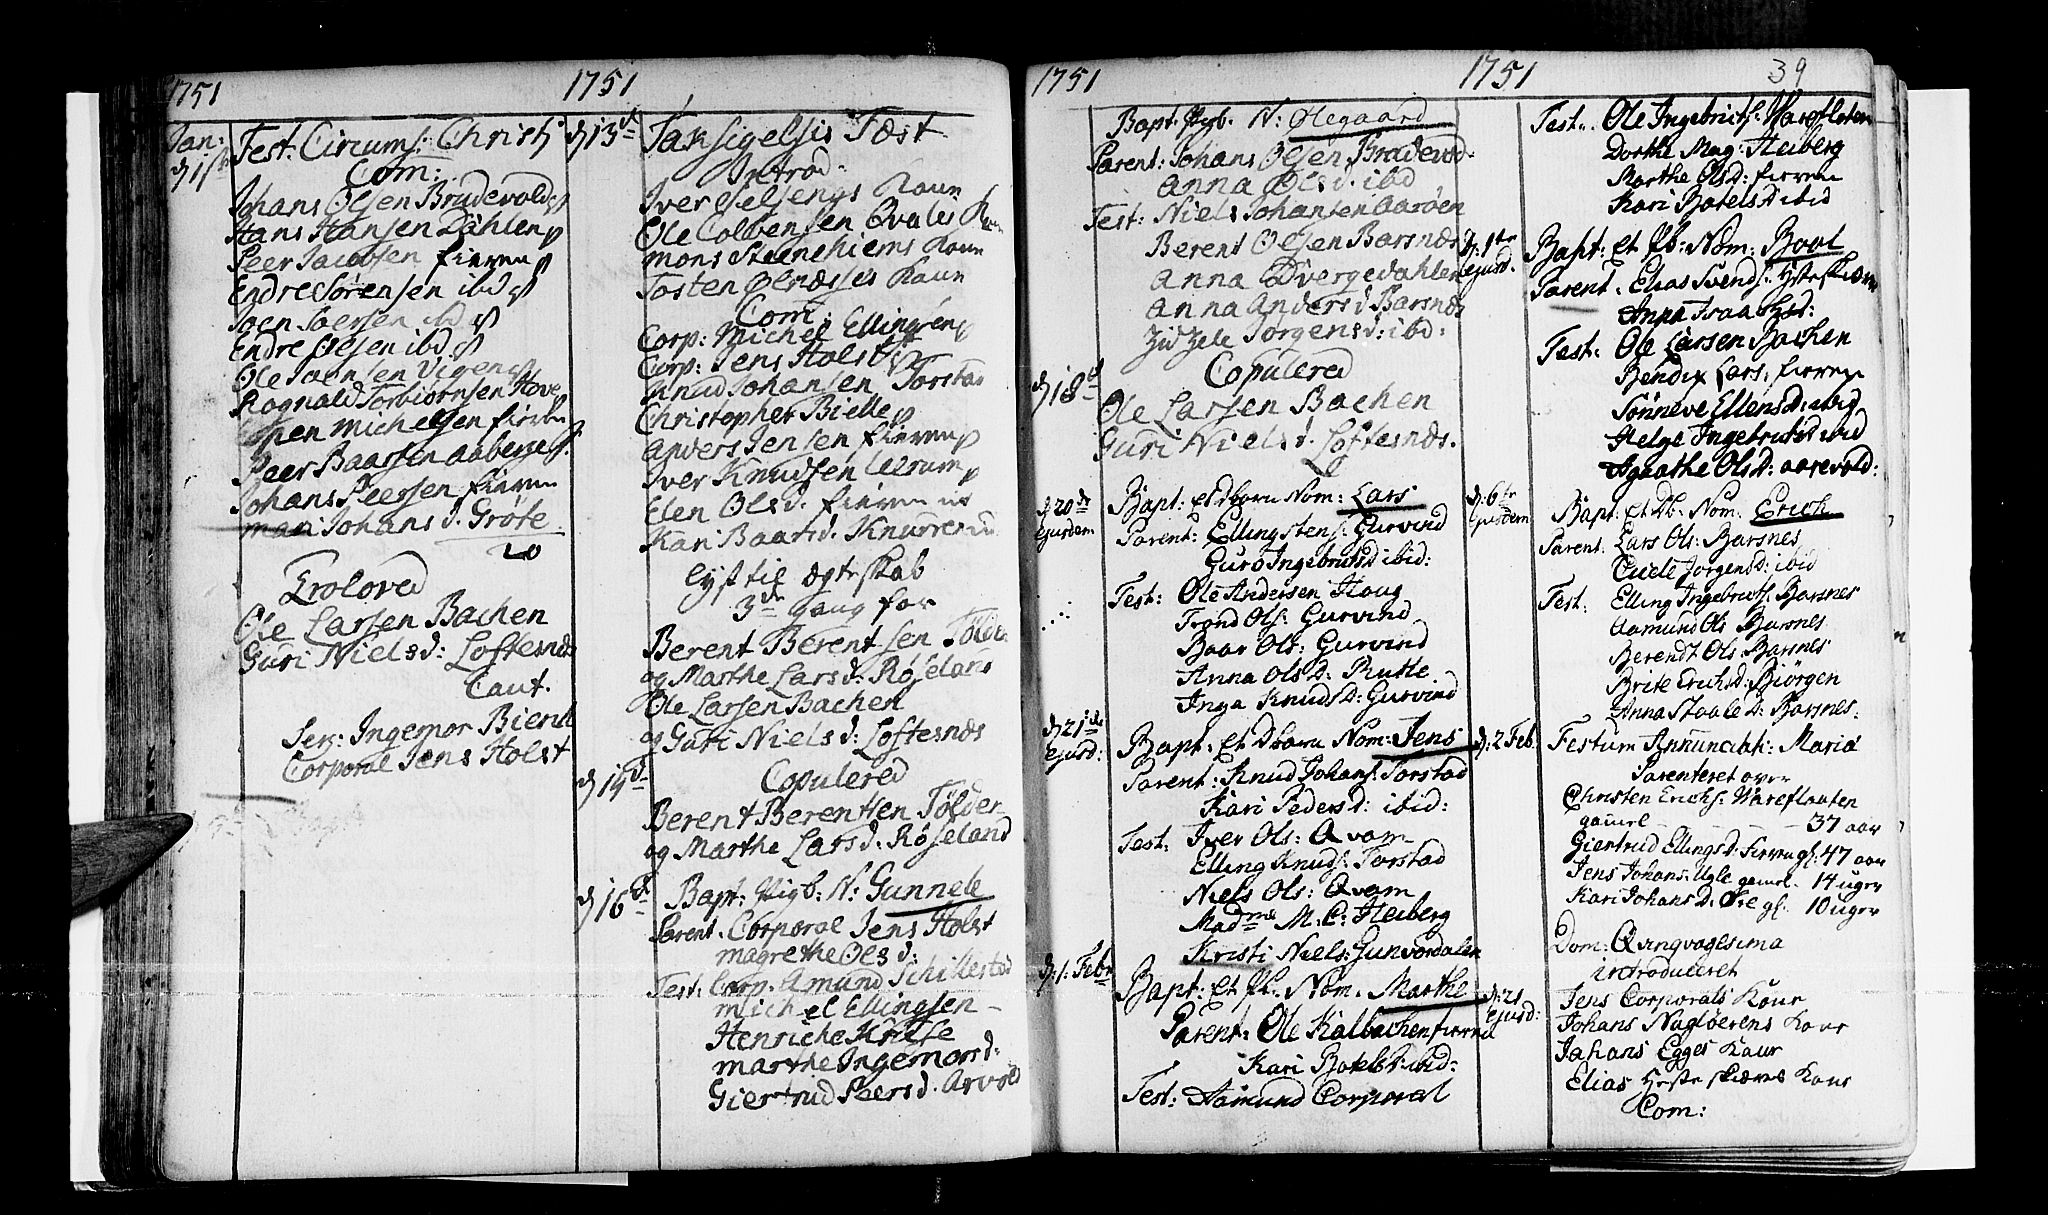 1751
1751
Jan:
Fest: Circums: Christi
Com:
Johans Olsen Brudevold
Hans Hansen Dahlen
Peer Jacobsen fierren
Endre Sörensen ibd
Joen Joersen ibd
Endre ibd
Ole Joensen Vigen
Rognald Torbiornsen Hove
Espen Michelsen
Peer Baarsen Aaberge
Johans Peersen fierren
Mari Johansd. Gröte
20
Troloved
Ole Larsen Bachen
Guri Nielsd: Loftesnæs
Caut.
Serg: Ingemor
Corporal Jens Holst
d 13d
Taksigelsis Fæst
Introd.
Iver Kaun
Ole Colbensen Qvales
Mons Steenehiems Kaun
Tosten Kaun
Com:
Corp: Michel Ellingsen
Corp: Jens Holst
Knud Johansen Torstad
Christopher Bielle
Anders Jensen fierren
Iver Knudsen
Elen Olsd. fierren
Kari Baarsd. Knurre
Lyst til Ægteskab
3de gang for
Berent Berentsen Tölder
og Marthe Larsd: Röseland
Ole Larsen Bachen
og Guri Nielsd: Loftesnæs
d 19d
Copulered
Berent Berentsen Tölder
og Marthe Larsd. Röseland
d 16d
Bapt: Pigb: N: Gunnele
Parent. Corporal Jens Holst
Magrethe Olsd:
Test: Corp. Amund Schillestad
Michel Ellingsen
Henriche Kruse
Marthe Ingemorsd:
Giertrud Peersd.
1751
1751
39
Bapt. Pigb. N: Olegaard
Parent: Johans Olsen Brudevold
Anna Olsd. ibd
Test: Niels Johansen Aaröen
Berent Olsen Barsnæs
Anna Dvergedahlen
Anna Andersd Barsnæs
Zidzele Jorgensd: ibd:
d 18d
Copulered
Ole Larsen Bachen
Guri Nielsd. Loftesnæs.
d 20de
ejusdem
Bapt: et Nom: Lars
Parent: Elling Stens: Gurvind
Guro Ingebrictsd ibid:
Test: Ole Andersen Haug
Trond Ols: Gurvind
Baar Ols: Gurvind
Anna Olsd: Rutle
Inga Knudsd: Gurvind
d 21de
ejusd:
Bapt: et Nom: Jens
Parent: Knud Johans: Torstad
Kari Pedersd: ibid:
Test: Iver Ols: Qvam
Elling Knuds: Torstad
Niels Ols: Qvam
Madme M. C: Heiberg
Kristi Niels: Gunvordalen
d: 1. Febr
Bapt: et Pb. Nom. Marthe
Parent: Ole Kalbachen fierren
Kari Botelsd: ibid:
Test: Aamund Corporal
Test: Ole Ingebricts: Wareflaten
Dorthe Mag: Heiberg
Marthe Olsd: fierren
Kari Botelsd ibid
ejusd.
Bapt: et Pb: Nom: Boel
Parent. Elias Svends:
Anna
Test: Ole Larsen Bachen
Bendix Lars: fierren
Sönneve Ellensd: ibid
Helge Ingebrictsd ibid
Agaathe Olsd: Aarevold:
d: 6te
ejusdem
Bapt: et Db. Nom: Erich
Parent: Lars Ols: Barsnes
Jorgensd: ibid
Test: Elling Ingebricts: Barsnes
Aamund Ols Barsnes
Berendt Ols Barsnes
Brite Erichsd: Biörgen
Anna Staaled: Barsnes:
d: 2 Feb.
Festum Annunciat: Mariæ
Parenteret over
Christen Erichs: Wareflaaten
gamel 37 aar
Giertrud Ellingsd: fierren gl: 47 aar
Jens Johans: Ugle gamel. 14 uger
Kari Johansd: Öre gl. 10 uger
Dom: Qvinqvagesima
introduceret
d: 21
ejusd:
Jens Corporals Kone
Johans Nagløerens Kone
Johans Egges Kone
Elias Kone
Com: